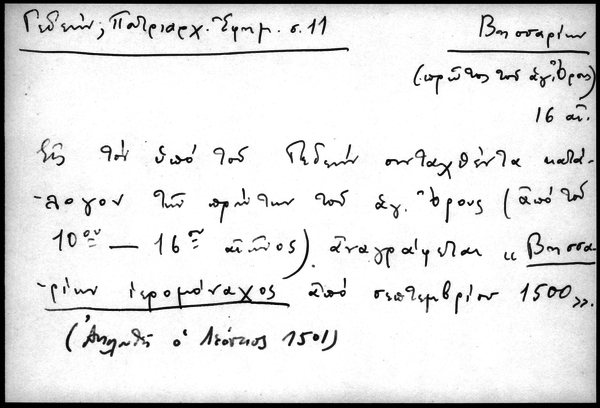 Γεδεών, Πατριαρχ. Ἐφημ. σ. 11
Βησσαρίων
(πρῶτος τοῦ ἁγ. Ὄρους)
16 αἰ.
Εἰς τὸν ὑπὸ τοῦ Γεδεὼν συνταχθέντα κατά-
-λογον τῶν πρώτων τοῦ ἁγ. Ὄρους (ἀπὸ τοῦ
10ου — 16ου αἰῶνος) ἀναγράφεται «Βησσα-
-ρίων ἱερομόναχος ἀπὸ σεπτεμβρίου 1500».
( ὁ Λεόντιος 1501)